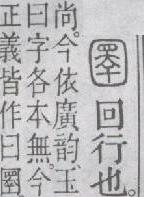 圛回行也。
尚。今依廣韵玉
曰字各本無。今
正義皆作曰圛